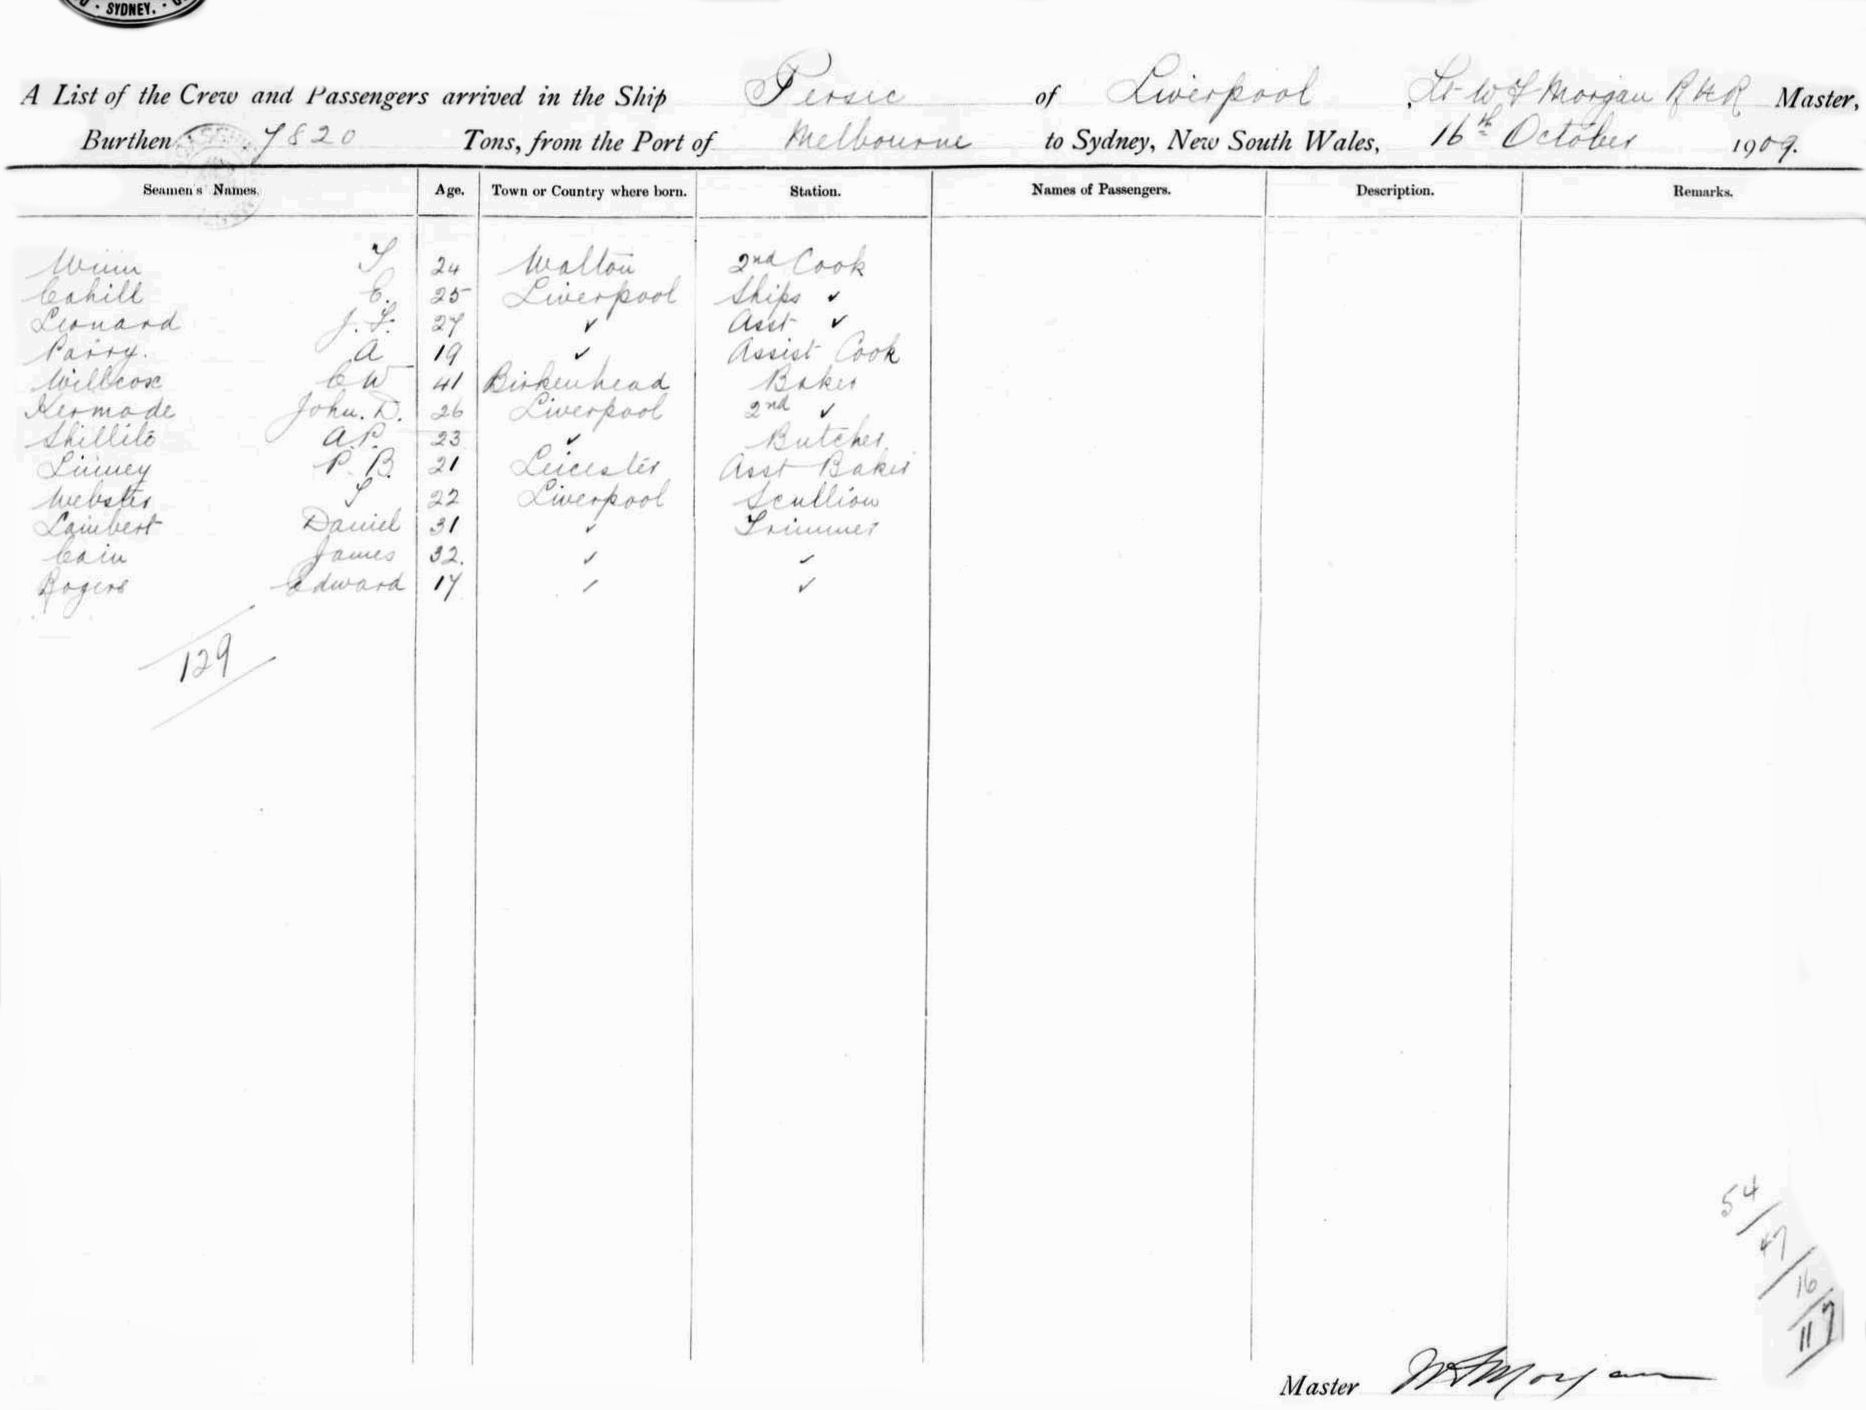 SYDNEY.
A List of the Crew and Passengers arrived in the Ship Persic of Liverpool, Lt W F Morgan RNR Master,
Burthen 7820 Tons, from the Port of Melbourne to Sydney, New South Wales, 16th October 1909.
Seamen's Names. Age. Town or Country where born. Station. Names of Passengers. Description. Remarks.
Winn T 24 Walton 2nd Cook
Cahill C. 25 Liverpool Ships ✓
Leonard J. F. 27 ✓ Asst ✓
Parry. A 19 ✓ Assist Cook
Willcox C W 41 Birkenhead Baker
Kermode John. D. 26 Liverpool 2nd ✓
Shillito A.P. 23 ✓ Butcher
Linney P. B. 21 Leicester Asst Baker
Webster T 22 Liverpool Scullion
Lambert Daniel 31 ✓ Trimmer
Cain James 32. ✓ ✓
Rogers Edward 17 ✓ ✓
129
54/
47/
16/
117
Master W F Morgan